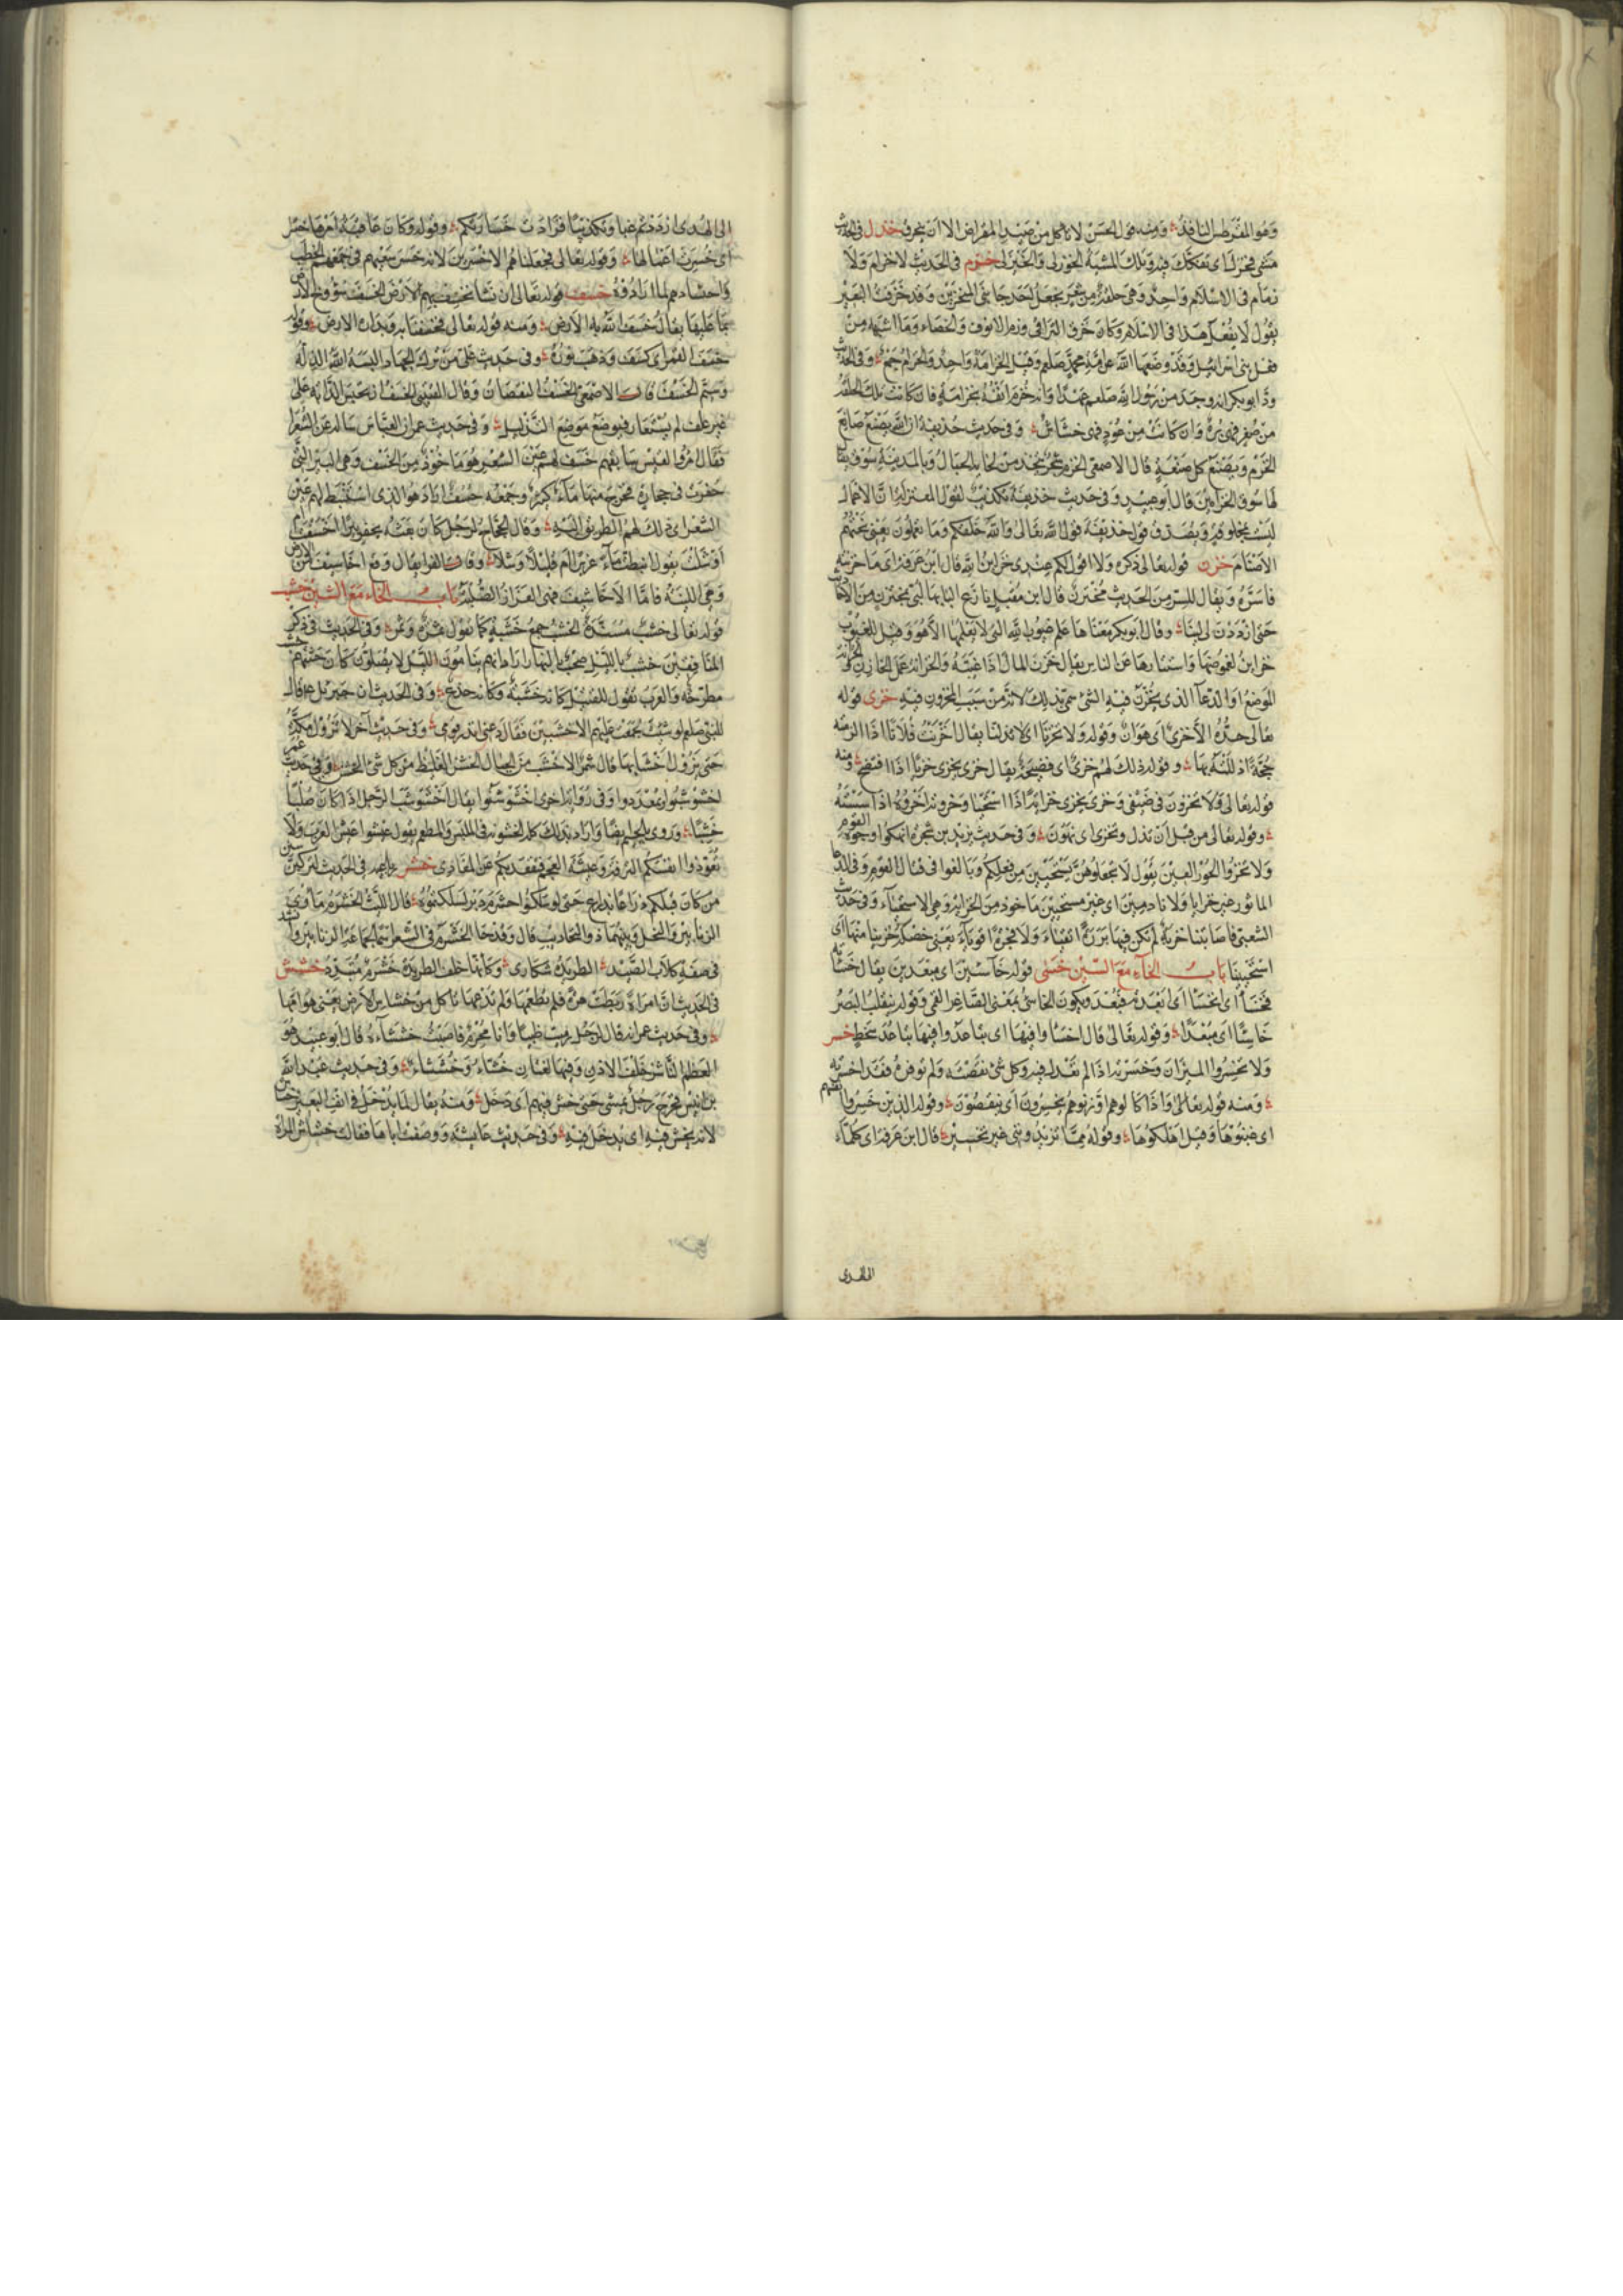 وهو المقرطس النافذ ومنه قول الحسن لا تاكل من صيد المعراض الا ان يخرق خزل في الحديث
مشى فخزل اي تفكك فيه وتلك المشية الخوزلى والخيزلى خزم في الحديث لا خزام ولا
زمام في الاسلام واحد وهي حلقة من شعر يجعل احد جانبي المنخرين وقد خزمت البعير
يقول لا يفعل هذا في الاسلام وكان خرق التراقي وزم الانوف والخصاء وما اشبهه من
فعل بني اسرائيل وقد وضعها الله عن امة محمد صلعم وقيل الخزامة واحد والخزام جمع وفي الحديث
ود ابو بكر انه وجد من رسول الله صلعم عهدا وانه خزم انفه بخزامة فان كانت تلك الحلقة
من صفر فهي برة وان كانت من عود فهي خشاش وفي حديث حذيفة ان الله يصنع صانع
الخزم ويصنع كل صنعة قال الاصمعي الخزم شجر يتخذ من لحائه الحبال وبالمدينة سوق يقال
لها سوق الخزامين قال ابو عبيد وفي حديث حذيفة تكذيب لقول المعتزلة ان الاعمال
ليست بمخلوقة ويصدق قول حذيفة قول الله تعالى والله خلقكم وما تعملون يعني نحتهم
الاصنام خزن قوله تعالى ذكره ولا اقول لكم عندي خزائن الله قال ابن عرفة اي ما خزنه
فاسره ويقال للسر من الحديث مختزن قال ابن مقبل نازع البابها لبي بمختزن من الاحاديث
حتى ازددن لي لينا وقال ابو بكر معناها علم غيوب الله التي لا يعلمها الا هو وقيل للغيوب
خزائن لغموضها واستتارها عن الناس يقال خزن المال اذا غيبه والخزانة عمل الخازن والخزانة
الموضع او الوعاء الذي يخزن فيه الشئ سمي بذلك لانه من سبب المخزون فيه خزى قوله
تعالى جده الا خزي اي هوان وقوله ولا تخزنا اي لا تذلنا يقال اخزيت فلانا اذا الزمته
حجة اذللته بها وقوله ذلك لهم خزي اي فضيحة يقال خزي يخزى خزيا اذا افتضح ومنه
قوله تعالى ولا تخزون في ضيفي وخزي يخزى خزاية اذا استحيا وخزوته اخزوه اذا سسته
وقوله تعالى من قبل ان نذل ونخزى اي نهون وفي حديث يزيد بن شجرة انهكوا وجوه القوم
ولا تخزوا الحور العين يقول لا تجعلوهن يستحيين من فعلكم وبالغوا في قتال القوم وفي الدعاء
الماثور غير خزايا ولا نادمين اي غير مستحيين ماخوذ من الخزاية وهي الاستحياء وفي حديث
الشعبي فاصابتنا خزية لم نكن فيها بررة اتقياء ولا فجرة اقوياء يعني خصلة خزينا منها اي
استحيينا باب الخاء مع السين خسئ قوله خاسئين اي مبعدين يقال خسأته
فخسأ اي انخسأ اي ابعدته فبعد ويكون الخاسئ بمعنى الصاغر القمي وقوله ينقلب البصر
خاسئا اي مبعدا وقوله تعالى قال اخسئوا فيها اي تباعدوا فيها تباعد سخط خسر
ولا تخسروا الميزان وخسرته اذا لم تعدله فيه وكل شئ نقصته ولم توفه فقد اخسرته
ومنه قوله تعالى واذا كالوهم او وزنوهم يخسرون اي ينقصون وقوله الذين خسروا انفسهم
اي غبنوها وقيل اهلكوها وقوله فما تزيدونني غير تخسير قال ابن عرفة اي كلما
الى الهدى ازددتم غيا وتكذيبا فزادت خسارتكم وقوله وكان عاقبة امرها خسرا
اي خسرت اعمالها وقوله تعالى فجعلناهم الاخسرين لانه خسر سعيهم في جمعهم الحطب
قوله تعالى ان نشا نخسف بهم الارض الخسف سؤوخ الارض
بما عليها يقال خسف الله به الارض ومنه قوله تعالى فخسفنا به وبداره الارض وقوله
خسف القمر اي كسف وذهب نوره وفي حديث علي من ترك الجهاد البسه الله الذلة
وسيم الخسف قال الاصمعي الخسف النقصان وقال القتيبي الخسف ان تحبس الدابة على
غير علف ثم يستعار فيوضع موضع التذليل وفي حديث عمر ان العباس ساله عن الشعرا
فقال امرؤ القيس سابقهم خسف لهم عين الشعر هو ماخوذ من الخسف وهي البئر التي
حفرت في حجارة فخرج منها ماء كثير وجمعه خسف اراد هو الذي استنبط لهم عين
الشعر اي ذلك لهم الطريق اليه وقال الحجاج لرجل كان بعثه يحفر بئرا اخسفت ام
اوشلت يقول انبطت ماء غزيرا ام قليلا وشلا
باب الخاء مع الشين خشب
قوله تعالى خشب مسندة الخشب جمع خشبة كما تقول ثمرة وثمر وفي الحديث في ذكر
المنافقين خشب بالليل صخب بالنهار اراد انهم ينامون الليل لا يصلون كان جثثهم خشب
مطرحة والعرب تقول للقتيل كانه خشبة وكانه جذع وفي الحديث ان جبريل قال
للنبي صلعم لو شئت جمعت عليهم الاخشبين فقال دعني انذر قومي وفي حديث آخر لا تزول مكة
حتى يزول اخشباها قال شمر الاخشب من الجبال الخشن الغليظ من كل شئ الخشن وفي حديث عمر
اخشوشبوا وتمعددوا وفي رواية اخرى اخشوشنوا يقال اخشوشب الرجل اذا كان صلبا
خشبا ويروى بالجيم ايضا واراد بذلك كله الخشونة في الملبس والمطعم يقول عيشوا عيش العرب ولا
تعودوا انفسكم الترفة وعيشة العجم فيقعد بكم عن المغازي خشرم في الحديث لتركبن سنن
من كان قبلكم ذراعا بذراع حتى لو سلكوا خشرم دبر لسلكتموه قال الليث الخشرم ماوى
الزنابير والنحل وبيتها ذو النخاريب قال وقد جا الخشرم في الشعر اسما لجماعة الزنابير وانشد
في صفة كلاب الصيد وكانها خلف الطريدة خشرم متبدد خشش
في الحديث ان امراة ربطت هرة فلم تطعمها ولم تدعها تاكل من خشاش الارض يعني هوامها
وفي حديث عمر انه قال له رجل رميت ظبيا وانا محرم فاصبت خششاءه قال ابو عبيد هو
العظم الناشز خلف الاذن وفيها لغتان خشاء وخششاء وفي حديث عبد الله
بن انيس فخرج رجل يمشي حتى خش فيهم اي دخل ومنه يقال لما يدخل في انف البعير خشاش
لانه يخش فيه اي يدخل فيه وفي حديث عايشة ووصفت اباها فقالت خشاش المراة